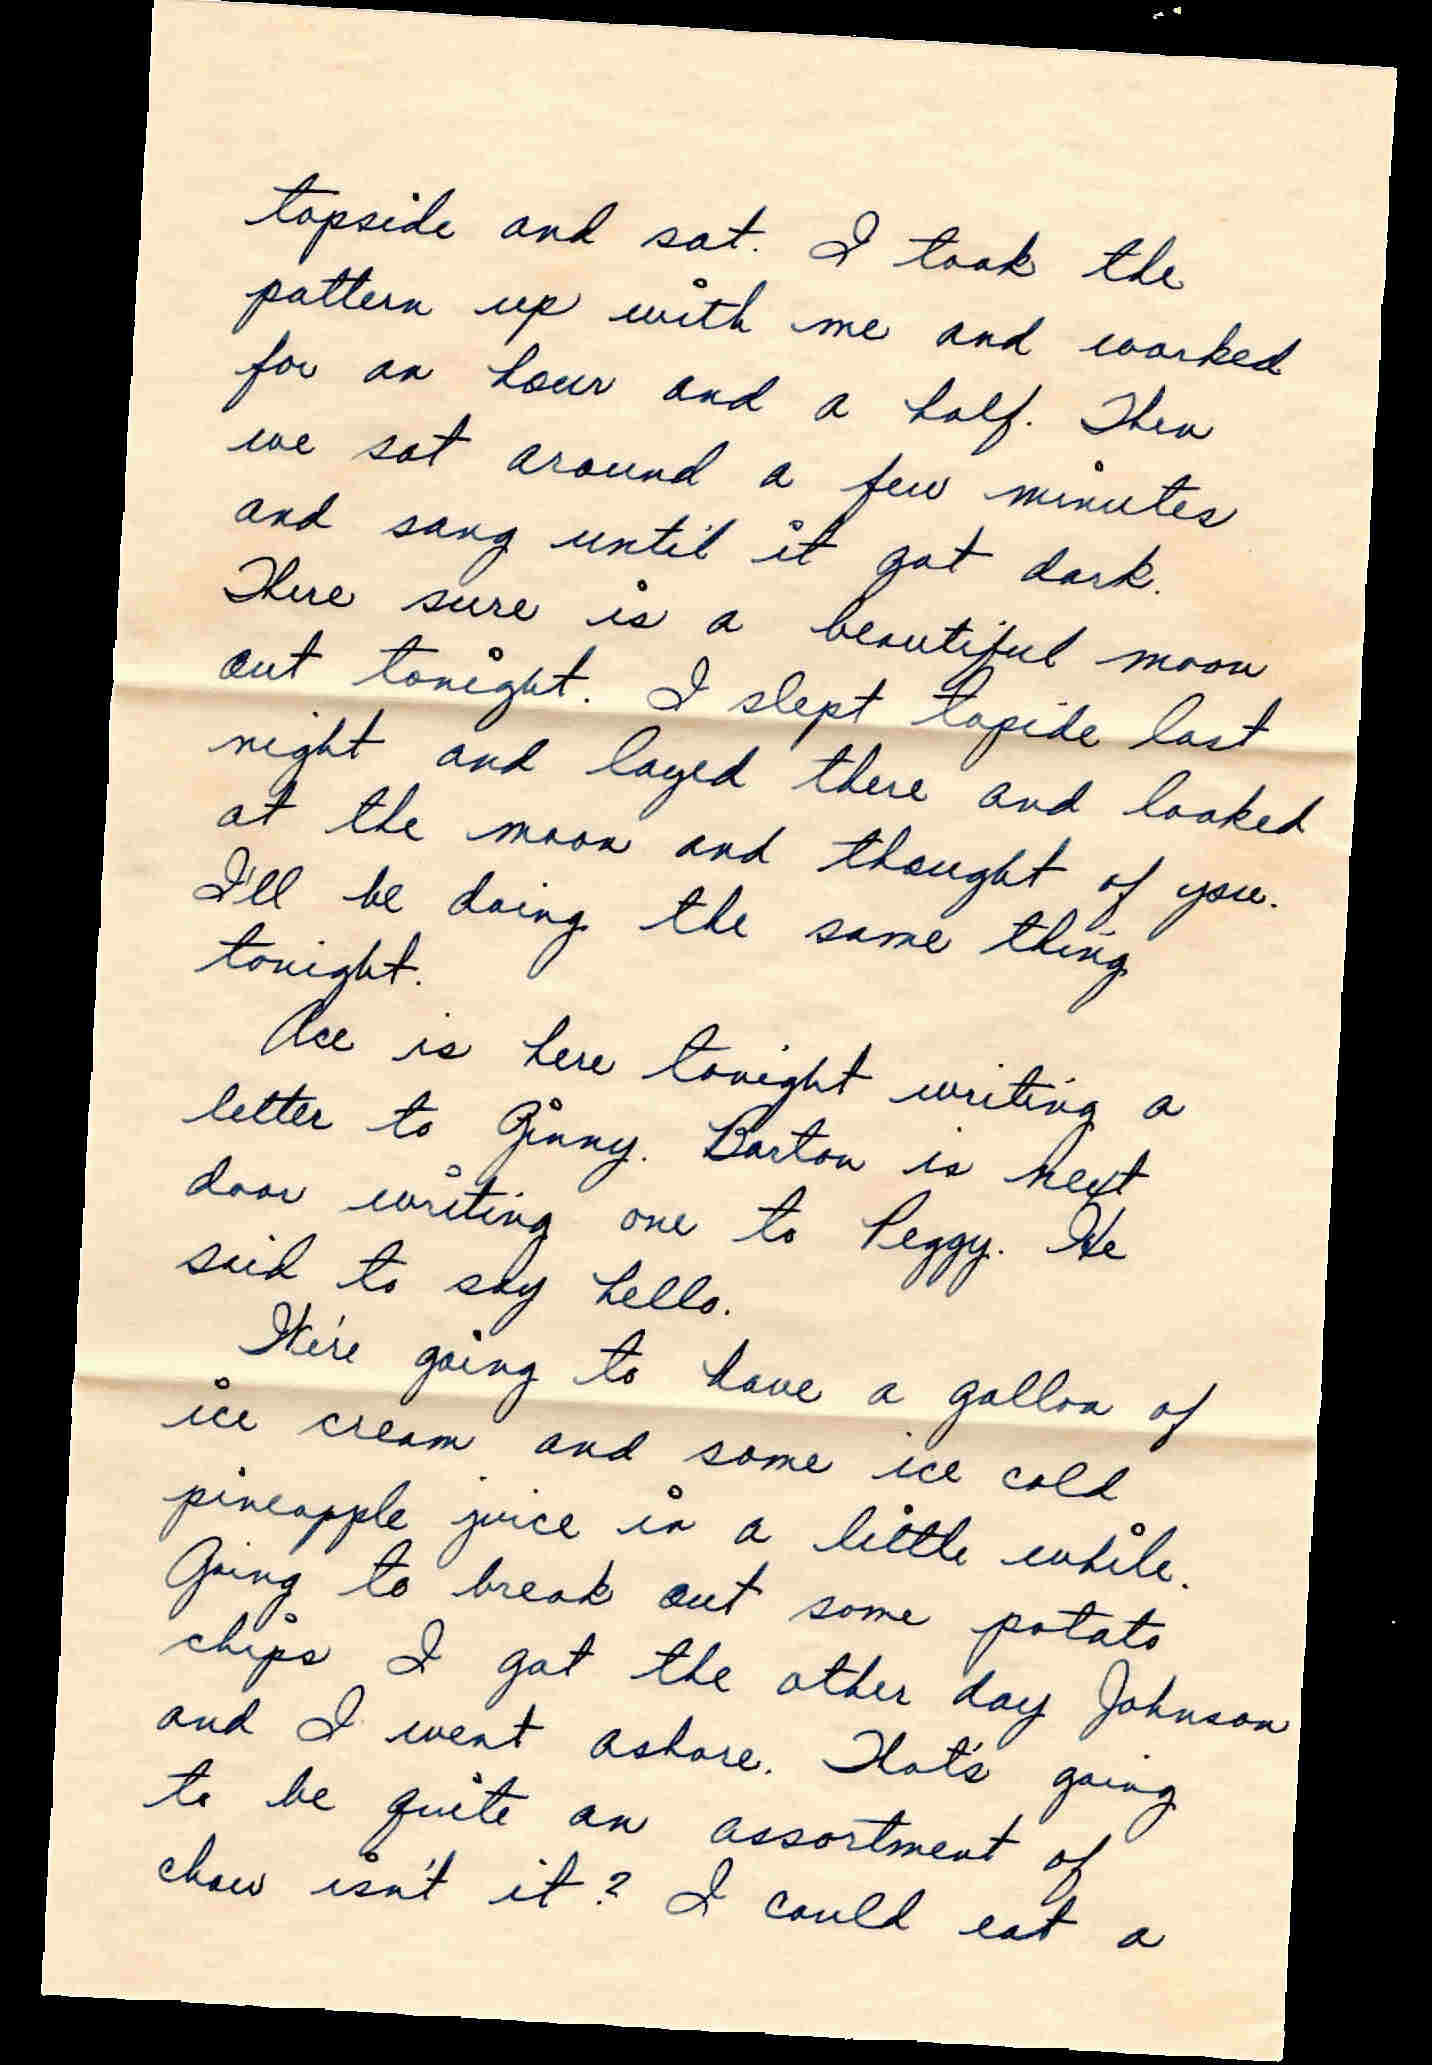 topside and sat. I took the
pattern up with me and worked
for an hour and a half. Then
we sat around a few minutes
and sang until it got dark.
There sure is a beautiful moon
out tonight. I slept topide last
night and layed there and looked
at the moon and thought of you.
I'll be doing the same thing
tonight.
Ace is here tonight writing a
letter to Ginny. Barton is next
door writing one to Peggy. He
said to say hello.
We're going to have a gallon of
ice cream and some ice cold
pineapple juice in a little while.
Going to break out some potato
chips I got the other day Johnson
and I went ashore. That's going
to be quite an assortment of
chow isn't it? I could eat a